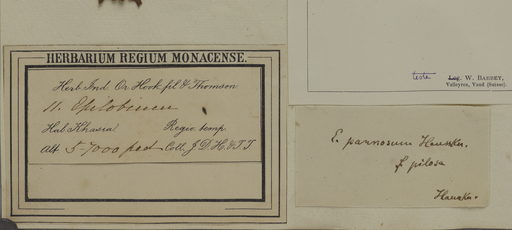 HERBARIUM REGIUM MONACENSE.
Herb. Ind. Or. Hook. fil. & Thomson
11. Epilobium
Hab. Khasia Regio temp.
Alt. 5-7000 ped. Coll. J. D. H. & T. T.
teste Leg. W. BARBEY,
Valleyres, Vaud (Suisse).
E. pannosum Hausskn.
f. pilosa
Hausskn.